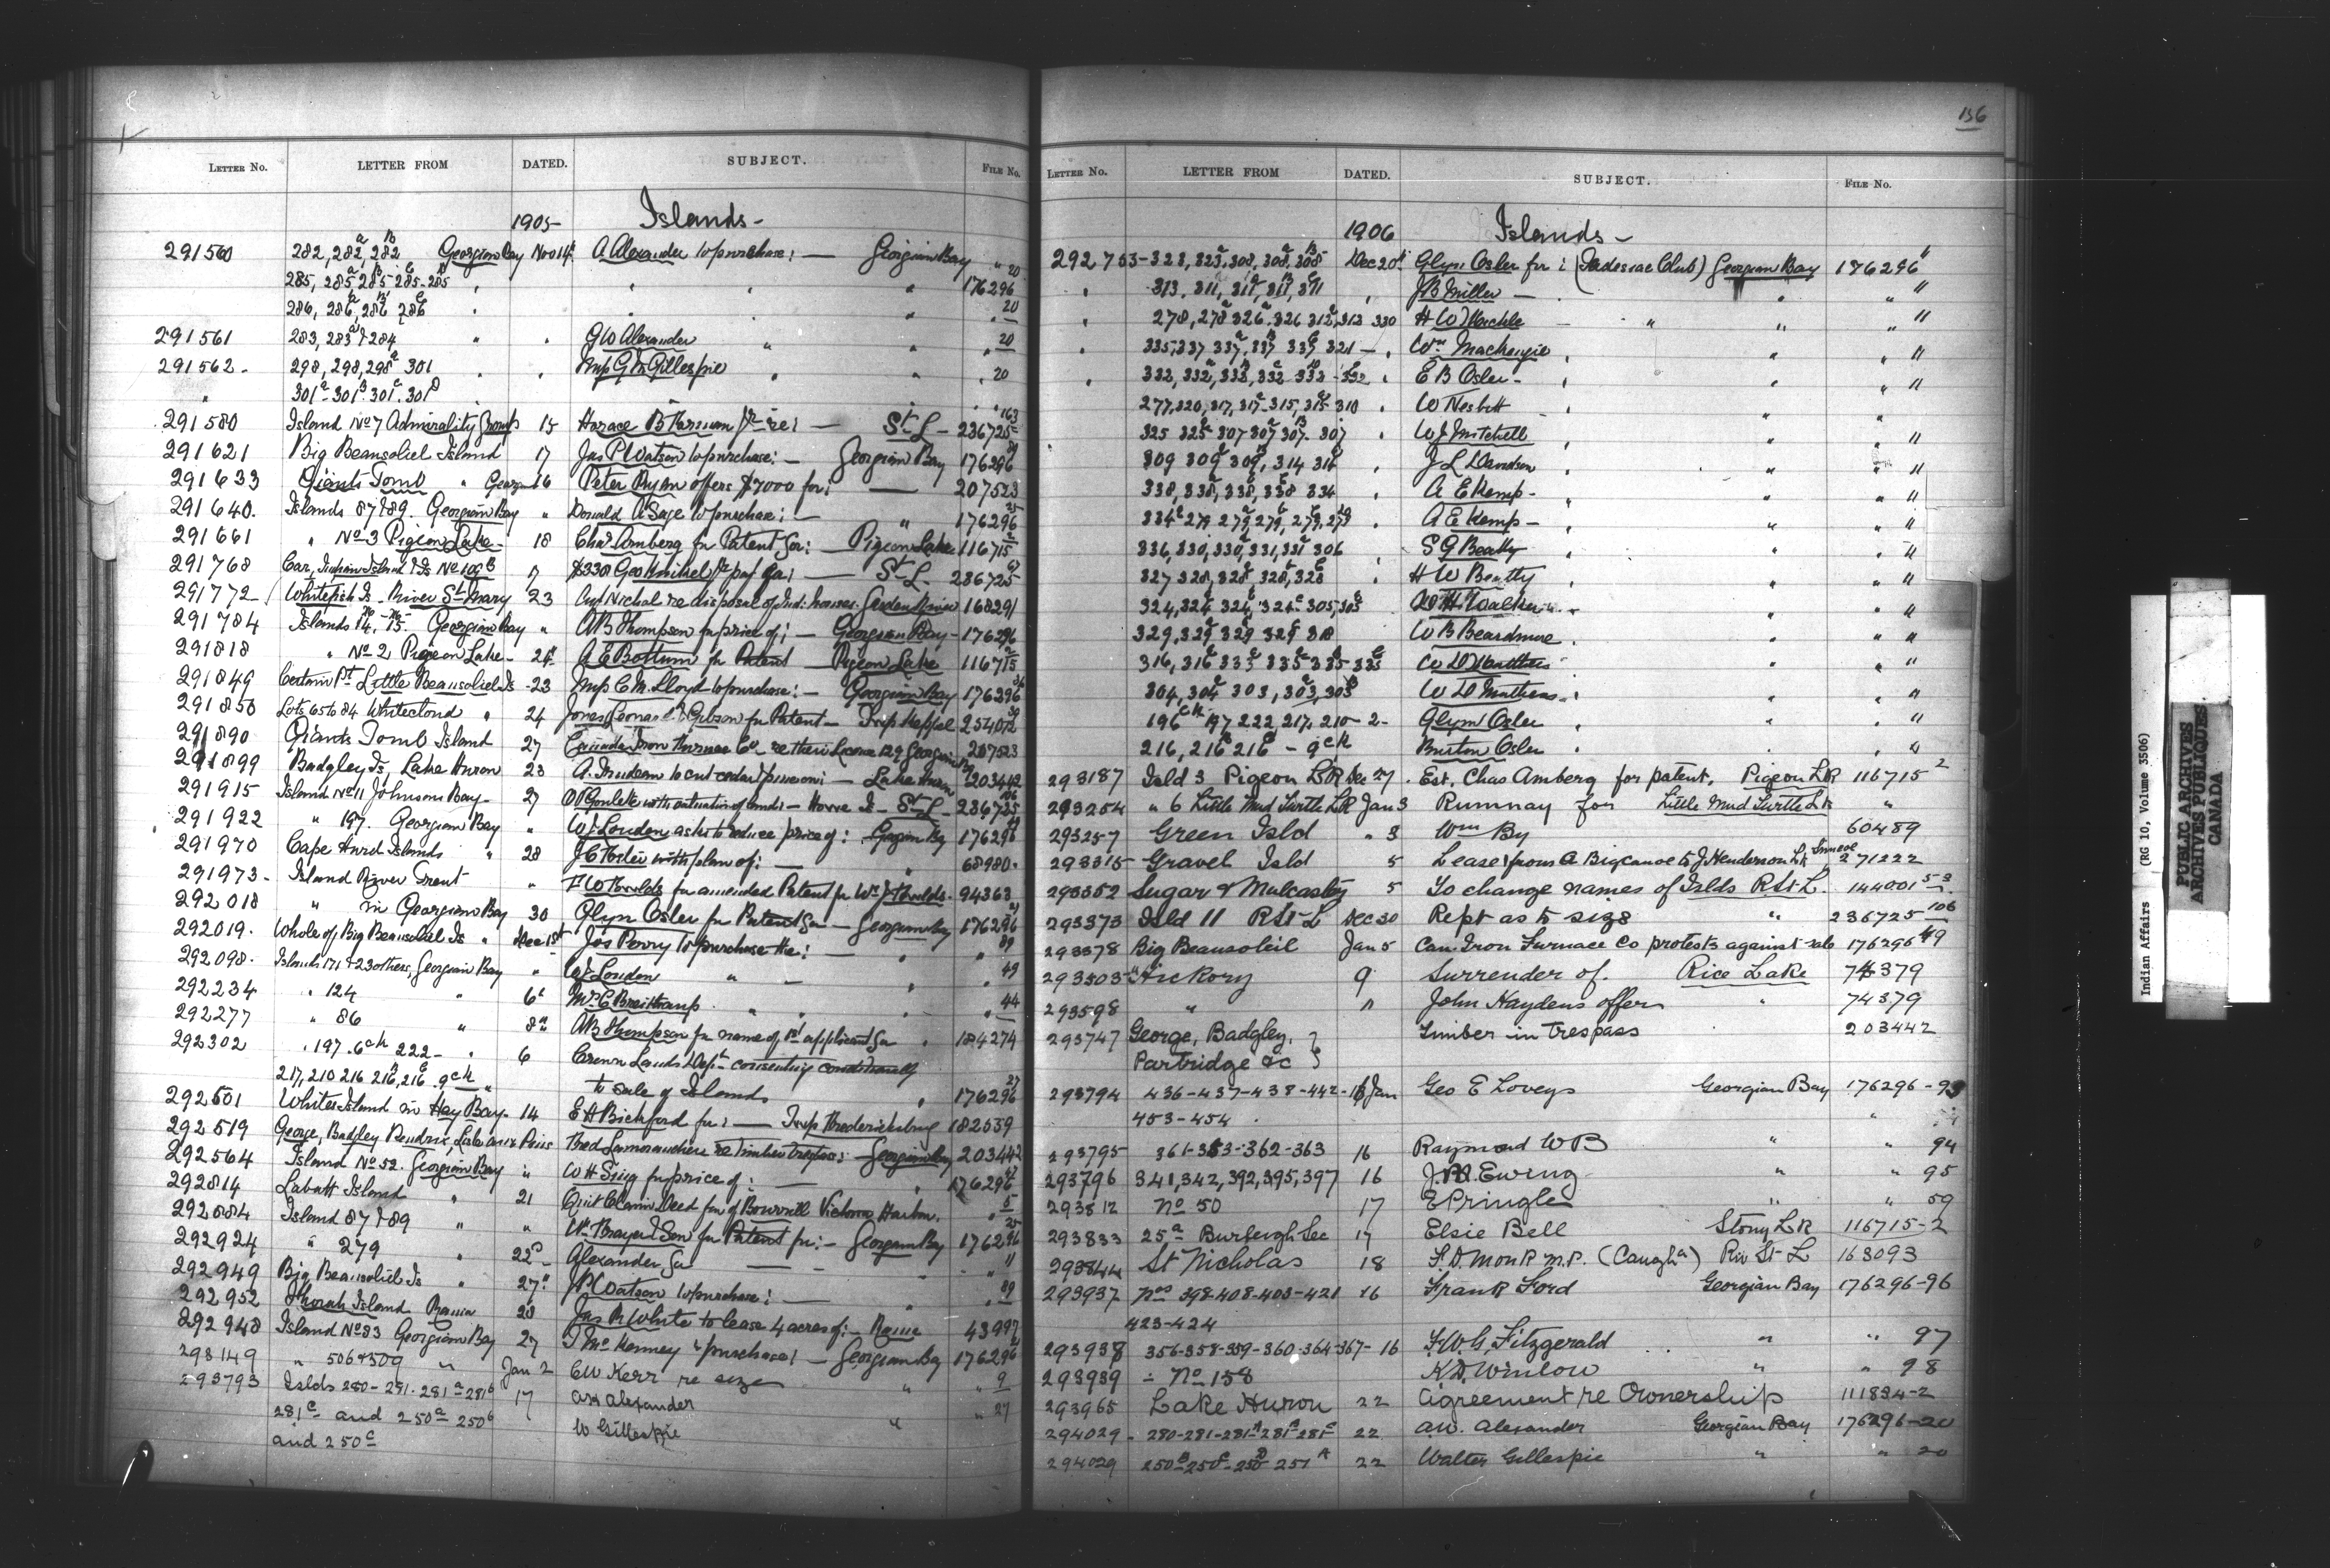 LETTER NO. LETTER FROM DATED. SUBJECT. FILE No.
1905 Islands -
291560 282, 282a, 282B Georgian Bay Nov 14 A Alexander to purchase: — Georgian Bay " 20
285, 285a 285B 285C 285D " " " " 176296
286, 286a, 286B 286C " " 20
291561 283, 283a & 284 " " G W Alexander " " " 20
291562. 298, 298, 298a 301 " " G M Gillespie " " " 20
" 301a 301B 301C 301D
291580 Island No 7 Admirality Group 15 Horace B re: — St L - 236725 163
291621 Big Beausoliel Island 17 Jas P Watson to purchase: — Georgian Bay 176296 89
291633 Giants Tomb " Georgian 16 Peter Ryan offers $7000 for: — 207523
291640. Islands 87 & 89. Georgian Bay " Donald A Sage to purchase: — " 176296 25
291661 " No 3 Pigeon Lake - 18 Chas Amberg for Patent for: — Pigeon Lake 116715 2
291768 Island & Is No 109 $330 Geo — St L. 236725
291772 Whitefish Is - River St Mary 23 Nichol re disposal of Ind: houses. Garden River 168291
291784 Islands 14, 15. Georgian Bay " A B Thompson for price of: — Georgian Bay - 176296
291818 " No 2 Pigeon Lake - 24 A E Bottum for Patent — Pigeon Lake 116715 2
291849 Certain Pt Little Beausoliel Is - 23 C M Lloyd to purchase: — Georgian Bay 176296
291850 Lots 65 to 84 Whitecloud " 24 Jones & Gibson for Patent - Twp Keppel 254072
291890 Giants Tomb Island 27 Canada Iron Furnace Co re their License 129 Georgian Bay 207523
291899 Badgley Is, Lake Huron 23 A. Trudeau to cut cedar — Lake Huron 203442
291915 Island No 11 Johnsons Bay - 27 with valuation of land - Howe Is - St L - 236725 106
291922 " 197. Georgian Bay " W J Loudon asks to reduce price of: Georgian Bay 176296
291970 Cape Hurd Islands " 28 with plan of: — " 68980.
291973 - Island River Trent " for amended Patent for 94363
292018 " in Georgian Bay 30 Glyn Osler for Patent — Georgian Bay 176296
292019. Whole of Big Beausoliel Is " Dec 1st Jas Perry to purchase the: — " " 89
292098. Islands 171 & 23 others, Georgian Bay " W J Loudon " — " 49
292234 " 124 " 6 C Breithaup " " " " 44
292277 " 86 " 8th A B Thompson for name of 1st applicant " 184274
292302 " 197. 6 222 - " 6 Crown Lands Dept consenting conditionally
217, 210 216 216, 216 " to sale of Islands " 176296 27
292501 Whites Island in Hay Bay - 14 E A Bickford for: — Twp Fredericksburg 182539
292519 George, Badgley Fred Lamorandiere re timber trespass: — Georgian Bay 203442
292564 Island No 52. Georgian Bay " W H for price of: — " 176296
292814 Labatt Island " 21 Quit Claim Deed Victoria Harbor. " 5
292884 Island 87 & 89 " " & Son for Patent for: — Georgian Bay 176296 25
292924 " 279 " 22 - Alexander — " " 11
292949 Big Beausoliel Is " 27 J P Watson to purchase: — " " 89
292952 Thorah Island Rama 28 Jas White to lease 4 acres of: - Rama 43997
292948 Island No 83 Georgian Bay 27 Kenney to purchase: — Georgian Bay 176296
293149 " 506 & 509 " Jan 2 C W Kerr re size " " 9
293793 Islds 280 - 281. 281a 281b 17 A W Alexander " 27
281c and 250a 250b W Gillespie "
and 250c
136
LETTER NO. LETTER FROM DATED. SUBJECT. FILE No.
1906 Islands -
292753 - 323, 323a, 308, 308a, 308B Dec 20th Glyn Osler for: (Madawaska Club) Georgian Bay 176296 11
" 313. 311, 311a, 311B, 311 " J B Miller — " " 11
" 278, 278a 326a. 326 312a, 312 330 H W — " " " 11
" 335, 337 337a. 337B 337C 321 — " Wm Mackenzie " " " 11
" 332, 332a, 332B, 332C 332D - 332 " E B Osler - " " " 11
277, 320, 317, 317a - 315, 315a 310 " W Nesbitt " " "
325 325a 307 307a 307B. 307 " W J Mitchell " " 11
309 309a 309B, 314 314 " J L Davidson " " 11
338, 338a, 338, 338 334 " A E Kemp - " " 11
334a 279 279a, 279, 279, 279 " A E Kemp — " " 11
336, 330, 330a, 331, 331a 306 " S G Beatty " " 11
327 328, 328a, 328, 328 " H W Beatty " " 11
324, 324a 324, 324 305, 305 W H Walker " " 11
329, 329a 329 329 318 W B Beardmore " " 11
316, 316a 335 335 335 335 W D Matthews " " 11
304, 304a 303, 303a, 303 W D Matthews " " 11
196 197 222, 217, 210 - 2 - Glyn Osler " " 11
216, 216B 216C - 9 Burton Osler " " 11
293187 Isld 3 Pigeon LR Dec 27. Est. Chas Amberg for patent. Pigeon LR 116715 2
293254 " 6 Little Mud Turtle LR Jan 3 Rumnay for Little Mud Turtle LR "
293257 Green Isld " 3 Wm By 60489
293315 - Gravel Isld 5 Lease from A Bigcanoe to J Henderson LK Simcoe 271222
293352 Sugar & Mulcastry 5 To change names of Islds R St L. 144001 53
293373 Isld 11 R St L Dec 30 Rept as to size " 236725 106
293378 Big Beausoleil Jan 5 Can. Iron Furnace Co protests against sale 176296 49
293503 Hickory 9 Surrender of. Rice Lake 74379
293598 " " John Haydens offer " 74379
293747 George, Badgley, } Timber in trespass 203442
Partridge &c }
293794 436 - 437 - 438 - 442 - 16 Jan Geo E Loveys Georgian Bay 176296 - 93
453 - 454 . "
293795 361 - 353 - 362 - 363 16 Raymond W B " " 94
293796 341, 342, 392, 395, 397 16 J. Ewing " " 95
293812 No 50 17 E Pringle " " 59
293833 25a Burleigh Sec 17 Elsie Bell Stony LR 116715 - 2
293844 St Nicholas 18 F. D. Monk M.P. (Caugha) Riv St L 163093
293937 Nos 398 - 408 - 403 - 421 16 Frank Ford Georgian Bay 176296 - 96
423 - 424
293938 356 - 358 - 359 - 360 - 364 - 367 - 16 F. W. G. Fitzgerald " " 97
293939 - No 158 K. D. Winlow " " 98
293965 Lake Huron 22 Agreement re Ownership 111834 - 2
294029 - 280 - 281 - 281A 281B 281C 22 A.W. Alexander Georgian Bay 176296 - 20
294029 250B 250C - 250D 251A 22 Walter Gillespie " " 20
Indian Affairs (RG 10, Volume 3506)
PUBLIC ARCHIVES
ARCHIVES PUBLIQUES
CANADA